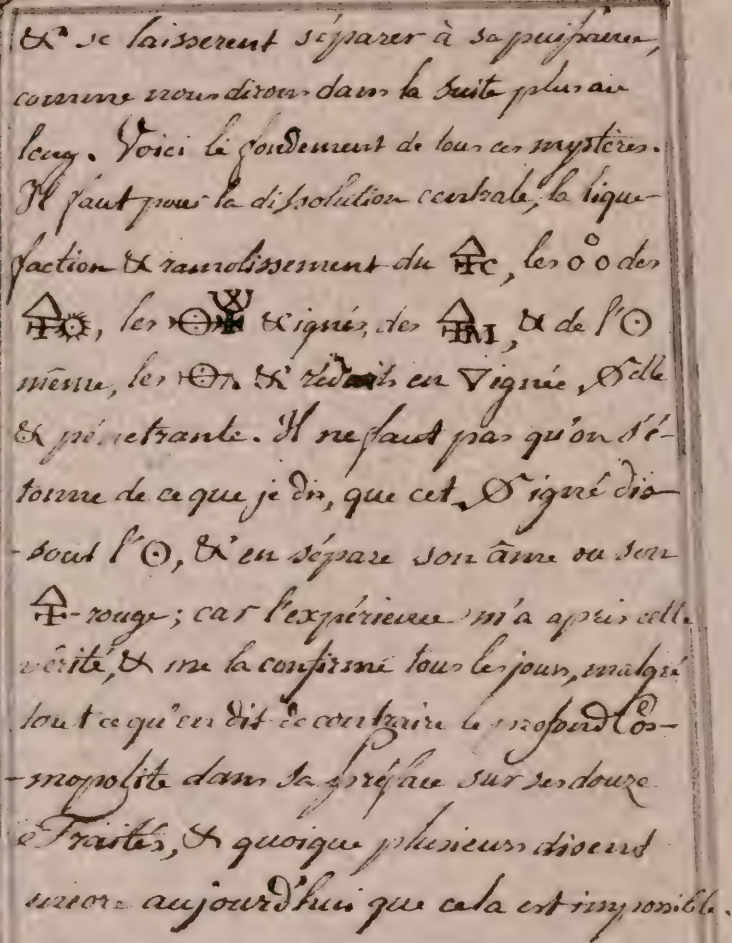 & se laisserent séparer à sa puissance,
comme nous dirons dans la suite plus au
long. Voici le fondement de tous ces mystères.
Il faut pour la dissolution centrale, la lique-
faction & ramolissement du 🜍C, les o°o des
🜍☼, les & ignés, des 🜍M, & de l'☉
même, les & réduits en 🜄 ignée,
& pénetrante. Il ne faut pas qu'on s'é-
tonne de ce que je dis, que cet igné dis-
-sout l'☉, & en sépare son âme ou son
🜍-rouge; car l'expérience m'a apris cette
vérité, & me la confirme tous les jours, malgré
tout ce qu'en dit de contraire le profond Cos-
-mopolite dans sa préface sur ses douze
Traités, & quoique plusieurs disent
encore aujourd'hui que cela est impossible.